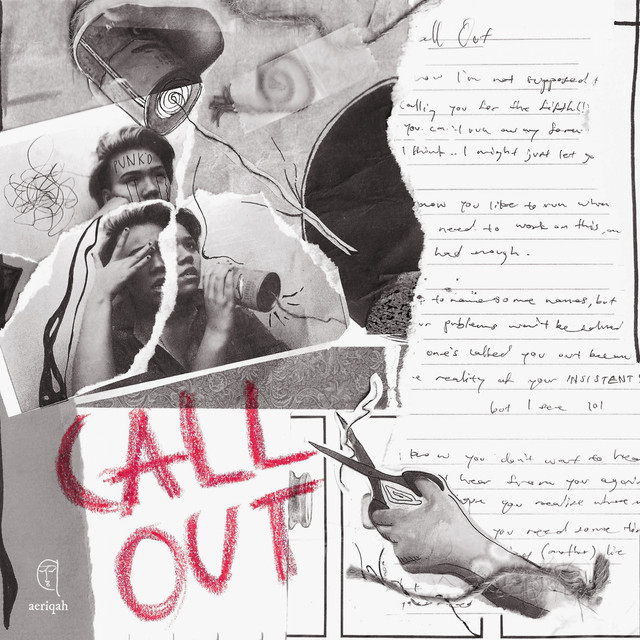 all Out
now I'm not supposed t
Calling you for the fifth
you can't run away forev
I think.. I might just let go
now you like to run when
need to work on this, 
had enough.
to name some names, but
problems won't be solved
one's called you out becau
e reality of your INSISTENT
but I see lol
know you don't want to hea
hear from you again
you realise where
you need some
(another) lie
PUNKO
CALL
OUT
aeriqah